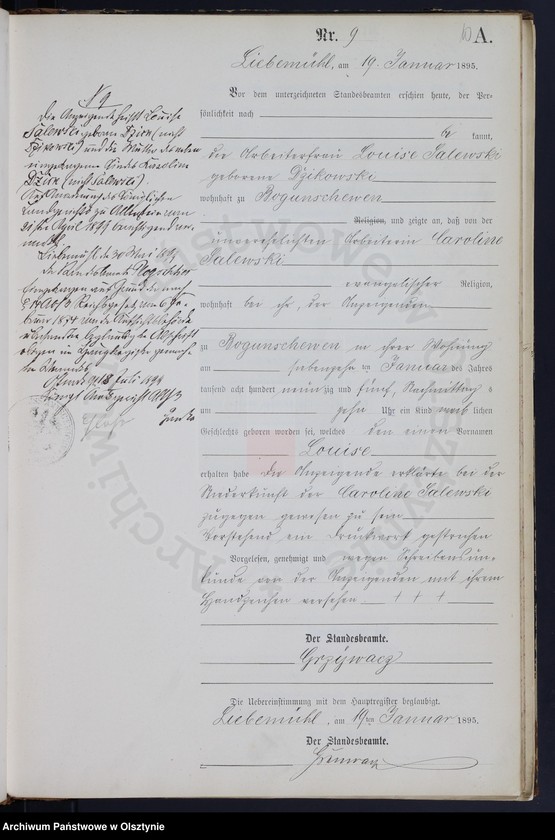 Nr. 9
10 A.
Liebemühl, am 19. Januar 1895.
Vor dem unterzeichneten Standesbeamten erschien heute, der Per-
sönlichkeit nach
be kannt,
die Arbeiterfrau Louise Salewski
geborene Dzikowski
wohnhaft zu Bogunschewen
Religion, und zeigte an, daß von der
unverehelichten Arbeiterin Caroline
Salewski
evangelischer Religion,
wohnhaft bei ihr, der Anzeigenden
zu Bogunschewen in ihrer Wohnung
am siebenzehn ten Januar des Jahres
tausend acht hundert neunzig und fünf, Nachmittag s
um zehn Uhr ein Kind weib lichen
Geschlechts geboren worden sei, welches den einen Vornamen
Louise
erhalten habe Die Anzeigende erklärte bei der
Niederkunft der Caroline Salewski
zugegen gewesen zu sein
Vorstehend ein Druckwort gestrichen
Vorgelesen, genehmigt und wegen Schreibensun-
kunde von der Anzeigenden mit ihrem
Handzeichen versehen + + +
Der Standesbeamte.
Grzywacz
Die Uebereinstimmung mit dem Hauptregister beglaubigt.
Liebemühl, am 19ten Januar 1895.
Der Standesbeamte.
N 9
Die Anzeigende heißt Louise
Salewski geborene Dzick (nicht
Dzikowski) und die Mutter des neben
eingetragenen Kindes Karoline
Dzick (nicht Salewski).
Liebemühl den 30 Mai 1898
Der Standesbeamte
18 Juli 1898
Archiwum Państwowe w Olsztynie
Archiwum Państwowe w Olsztynie